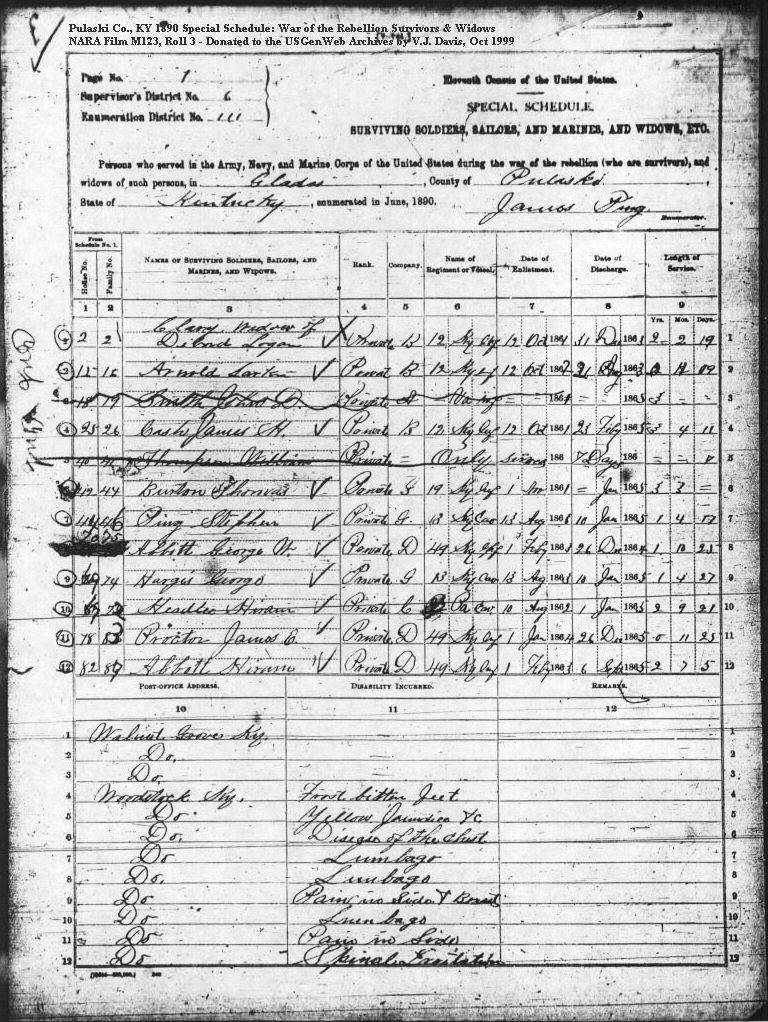 Pulaski Co., KY 1890 Special Schedule: War of the Rebellion Survivors & Widows
NARA Film M123, Roll 3 - Donated to the USGenWeb Archives by V.J. Davis, Oct 1999
Page No. 1
Eleventh Census of the United States.
Supervisor's District No. 6
SPECIAL SCHEDULE.
Enumeration District No. 111
SURVIVING SOLDIERS, SAILORS, AND MARINES, AND WIDOWS, ETC.
Persons who served in the Army, Navy, and Marine Corps of the United States during the war of the rebellion (who are survivors), and
widows of such persons, in Glades, County of Pulaski,
State of Kentucky, enumerated in June, 1890.
James Ping
Enumerator.
From Schedule No. 1.
House No. Family No. NAMES OF SURVIVING SOLDIERS, SAILORS, AND MARINES, AND WIDOWS. Rank. Company. Name of Regiment or Vessel. Date of Enlistment. Date of Discharge. Length of Service.
1 2 3 4 5 6 7 8 9
Yrs. Mos. Days.
1 2 2 widow of Logan Private B 12 Ky Inf 12 Oct 1861 31 Dec 1863 2 2 19 1
2 15 16 Arnold Private B 12 Ky Inf 12 Oct 186 21 Aug 186 09 2
3 18 19 Smith John D. Private A Va Inf = = 1861 = = 1865 3 = = 3
4 25 26 Cash James H. Private B 12 Ky Inf 12 Oct 1861 23 Feby 1865 3 4 11 4
5 40 Thompson William Private = Only served 7 Days 186 = = 7 5
6 42 44 Burton Thomas Private 19 Ky Inf 1 Nov 1861 = Jan 1865 3 3 = 6
7 44 46 Ping Stephen Private G. 13 Ky Cav 13 Aug 1863 10 Jan 1865 1 4 27 7
70 75 Abbott George W. Private D 49 Ky Inf 1 Feby 1863 26 Dec 1864 1 10 25 8
9 74 Hargis George Private G 13 Ky Cav 13 Aug 1863 10 Jan 1865 1 4 27 9
10 Headlee Hiram Private C Pa Cav 10 Aug 1862 1 Jan 1865 2 9 21 10
11 78 83 Proctor James C. Private D 49 Ky Inf 1 Jan 1864 26 Dec 1865 0 11 25 11
12 82 87 Abbott Hiram Private D 49 Ky Inf 1 Feby 1863 6 Sept 1865 2 7 5 12
POST-OFFICE ADDRESS. DISABILITY INCURRED. REMARKS.
10 11 12
1 Walnut Grove Ky. 1
2 Do. 2
3 Do. 3
4 Woodstock Ky. Frost bitten feet 4
5 Do Yellow &c 5
6 Do. Disease of the chest 6
7 Do Lumbago 7
8 Do. Lumbago 8
9 Do Pain in Side & Breast 9
10 Do Lumbago 10
11 Do Pain in Side 11
12 Do Spinal Irritation 12